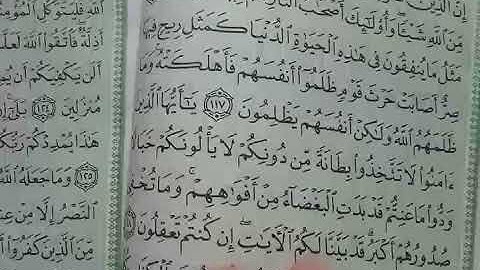 إِنَّ ٱلَّذِينَ
مِّنَ ٱللَّهِ شَيْـًٔا وَأُو۟لَـٰٓئِكَ أَصْحَـٰبُ ٱلنَّارِ
مَثَلُ مَا يُنفِقُونَ فِى هَـٰذِهِ ٱلْحَيَوٰةِ ٱلدُّنْيَا كَمَثَلِ رِيحٍ فِيهَا
صِرٌّ أَصَابَتْ حَرْثَ قَوْمٍ ظَلَمُوٓا۟ أَنفُسَهُمْ فَأَهْلَكَتْهُ وَمَا
ظَلَمَهُمُ ٱللَّهُ وَلَـٰكِنْ أَنفُسَهُمْ يَظْلِمُونَ ١١٧ يَـٰٓأَيُّهَا ٱلَّذِينَ
ءَامَنُوا۟ لَا تَتَّخِذُوا۟ بِطَانَةً مِّن دُونِكُمْ لَا يَأْلُونَكُمْ خَبَالًا
وَدُّوا۟ مَا عَنِتُّمْ قَدْ بَدَتِ ٱلْبَغْضَآءُ مِنْ أَفْوَٰهِهِمْ وَمَا تُخْفِى
صُدُورُهُمْ أَكْبَرُ قَدْ بَيَّنَّا لَكُمُ ٱلْـَٔايَـٰتِ إِن كُنتُمْ تَعْقِلُونَ
ٱللَّهِ فَلْيَتَوَكَّلِ ٱلْمُؤْمِ
أَذِلَّةٌ فَٱتَّقُوا۟ ٱللَّهَ لَعَلَّ
أَلَن يَكْفِيَكُمْ أَن يُ
مُنزَلِينَ ١٢٤ بَلَىٰٓ إِن
هَـٰذَا يُمْدِدْكُمْ رَبُّكُم
١٢٥ وَمَا جَعَلَهُ ٱللَّهُ
ٱلنَّصْرُ إِلَّا مِنْ عِن
مِّنَ ٱلَّذِينَ كَفَرُوٓا۟ أَوْ